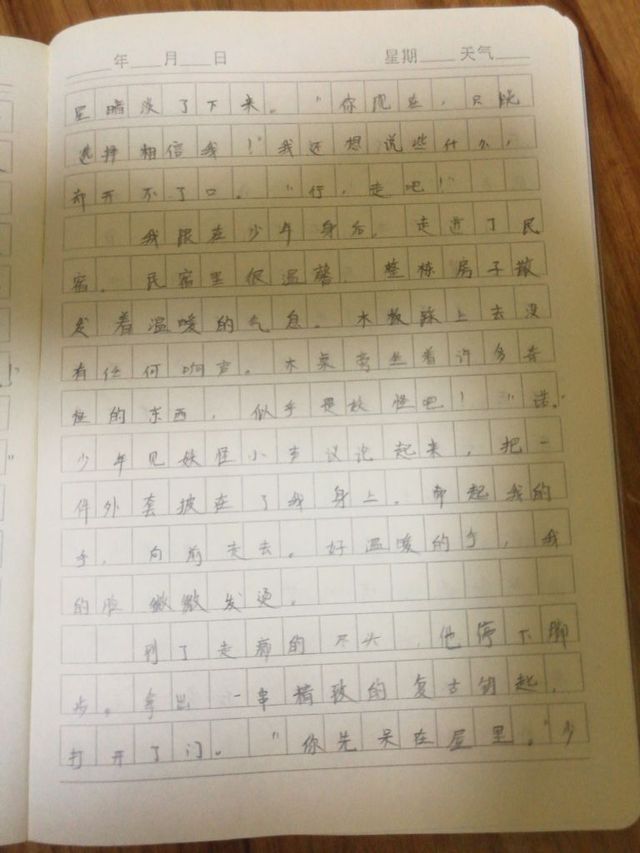 年 月 日 星期 天气
星暗淡了下来。“你现在，只能
选择相信我！”我还想说些什么，
却开不了口。“行，走吧！”
我跟在少年身后，走进了民
宿。民宿里很温馨，整栋房子散
发着温暖的气息。木板踩上去没
有任何响声。木桌旁坐着许多奇
怪的东西，似乎是妖怪吧！“诺。”
少年见妖怪小声议论起来，把一
件外套披在了我身上。牵起我的
手，向前走去。好温暖的手，我
的脸微微发烫。
到了走廊的尽头，他停下脚
步。拿出一串精致的复古钥起，
打开了门。“你先呆在屋里。”少